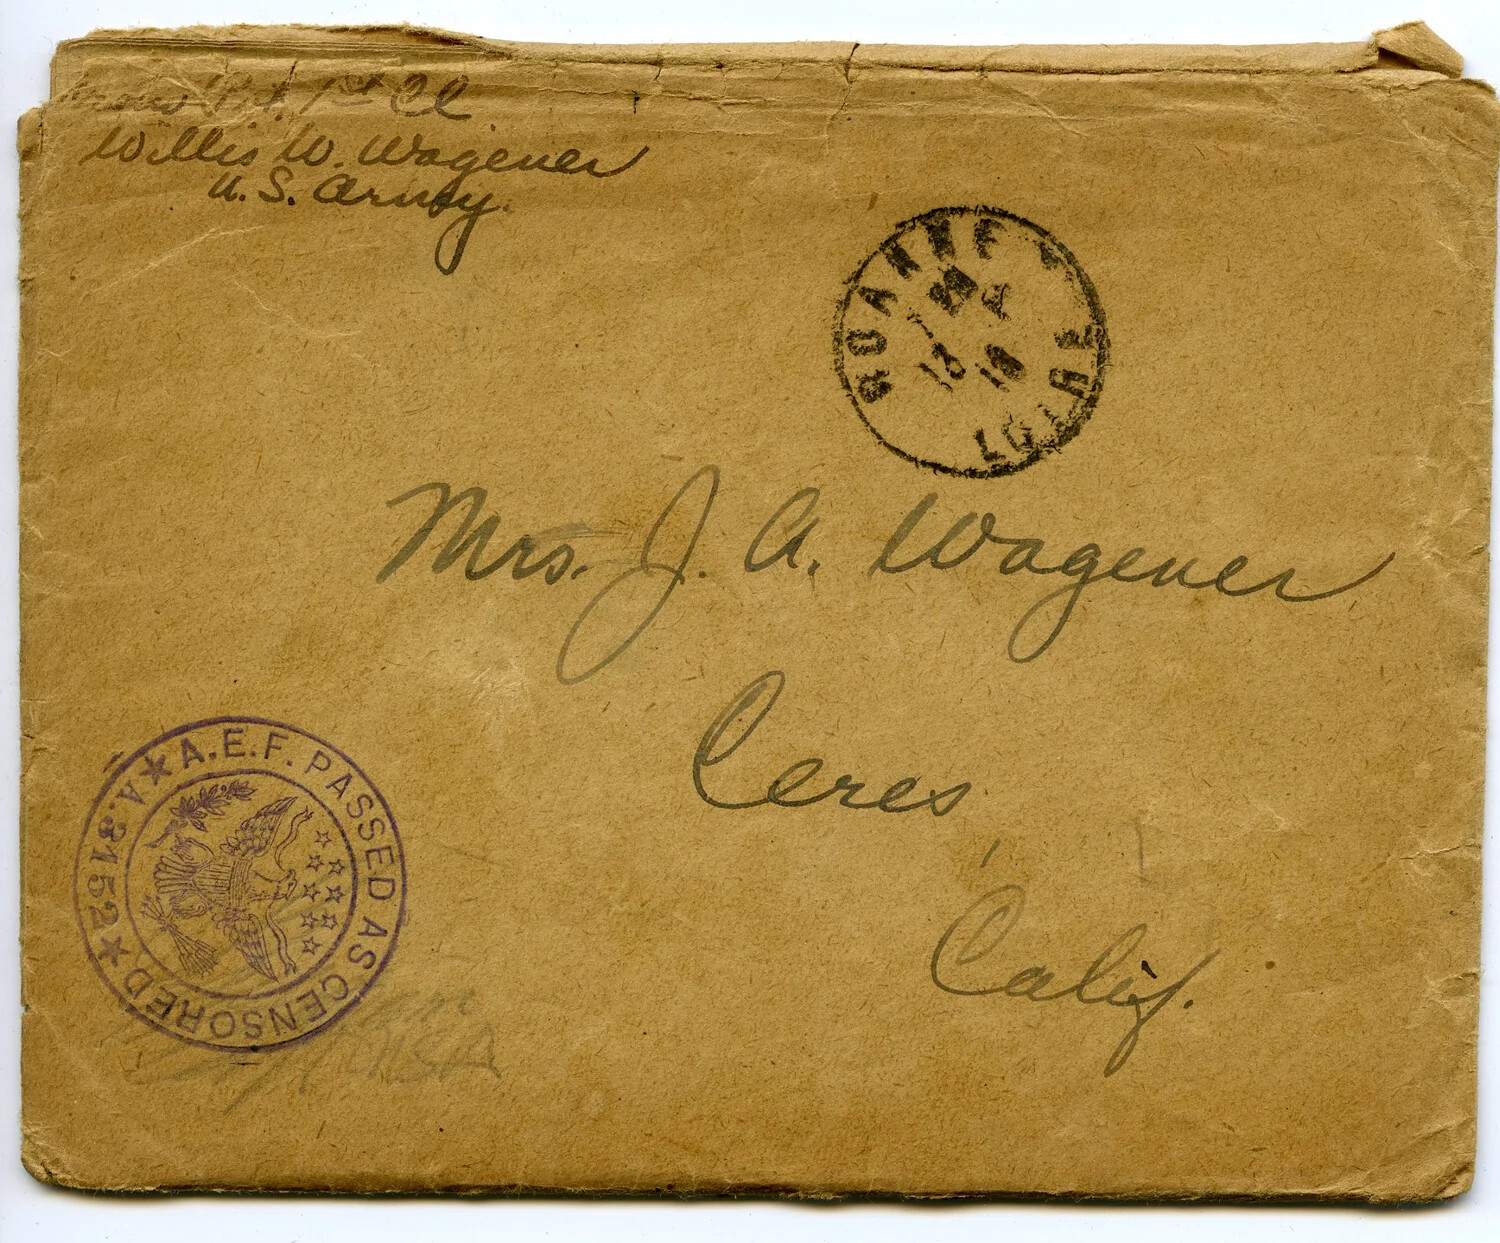 Pvt. 1st Cl.
Willis W. Wagener
U. S. Army.
ROANNE
LOIRE
13
19
Mrs. J. A. Wagener
Ceres
Calif.
★ A.E.F. PASSED AS CENSORED ★ A.3152